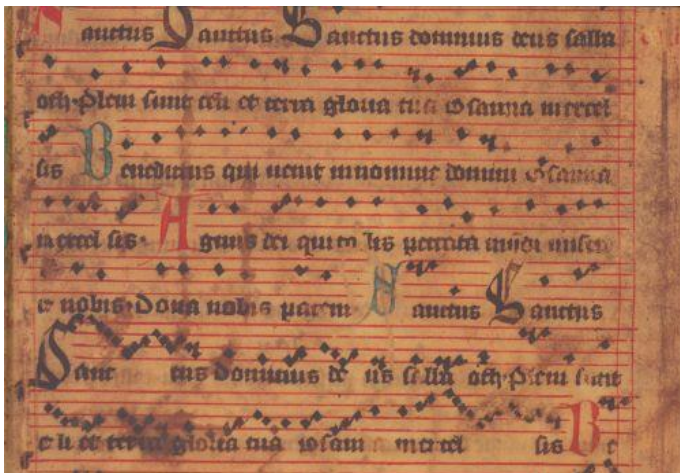 Sanctus Sanctus Sanctus dominus deus saba
oth Pleni sunt celi et terra gloria tua Osanna in excel
sis Benedictus qui uenit in nomine domini Osanna
in excel sis Agnus dei qui tollis peccata mundi misere
re nobis Dona nobis pacem Sanctus Sanctus
Sanc tus dominus de us saba oth Pleni sunt
ce li et terra gloria tua osanna in excel sis Be